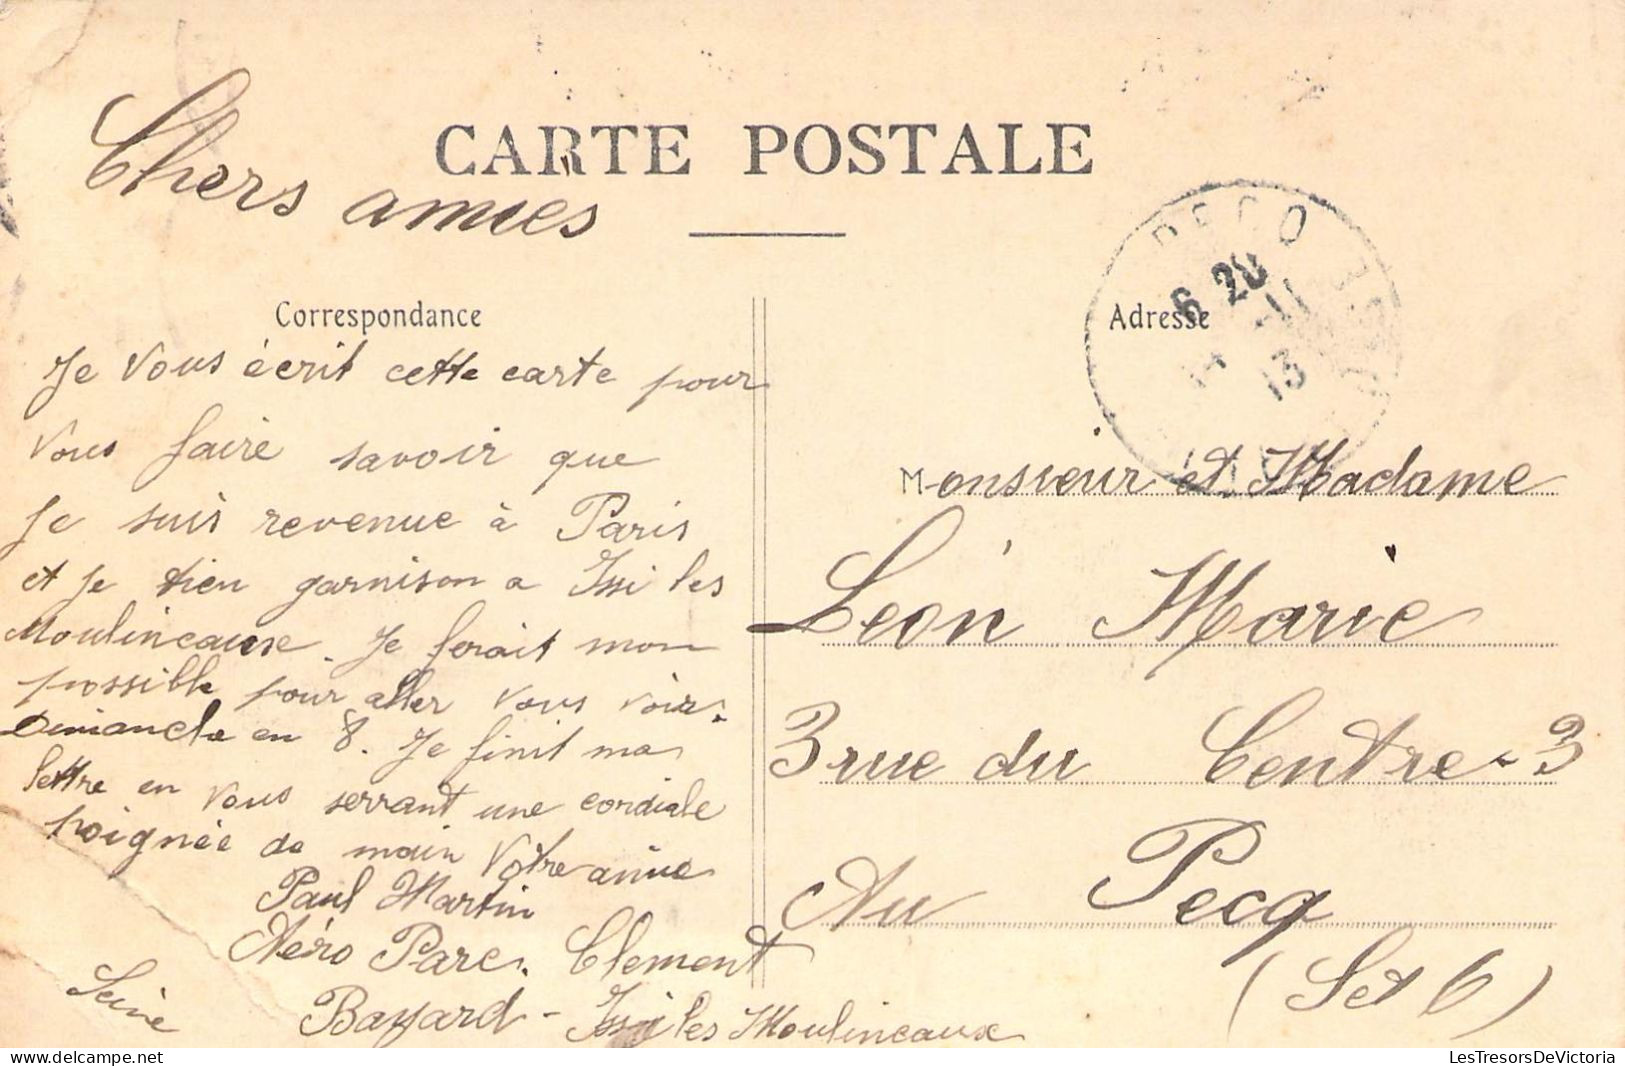 CARTE POSTALE
Chers amies
Correspondance
Je Vous écrit cette carte pour
Vous faire savoir que
Je suis revenue à Paris
et je tien garnison a Issi les
Moulineause. Je ferait mon
possible pour aller vous voir.
Dimanche en 8. Je finit ma
lettre en vous serrant une cordiale
poignée de main Votre amie
Paul Martin
Aéro Parc. Clement
Bayard - Issi les Moulineaux
Seine
6 20
11
13
Adresse
Monsieur et Madame
Léon Marie
3 rue du Centre - 3
Au Pecq
(S et 6)
LesTresorsDeVictoria